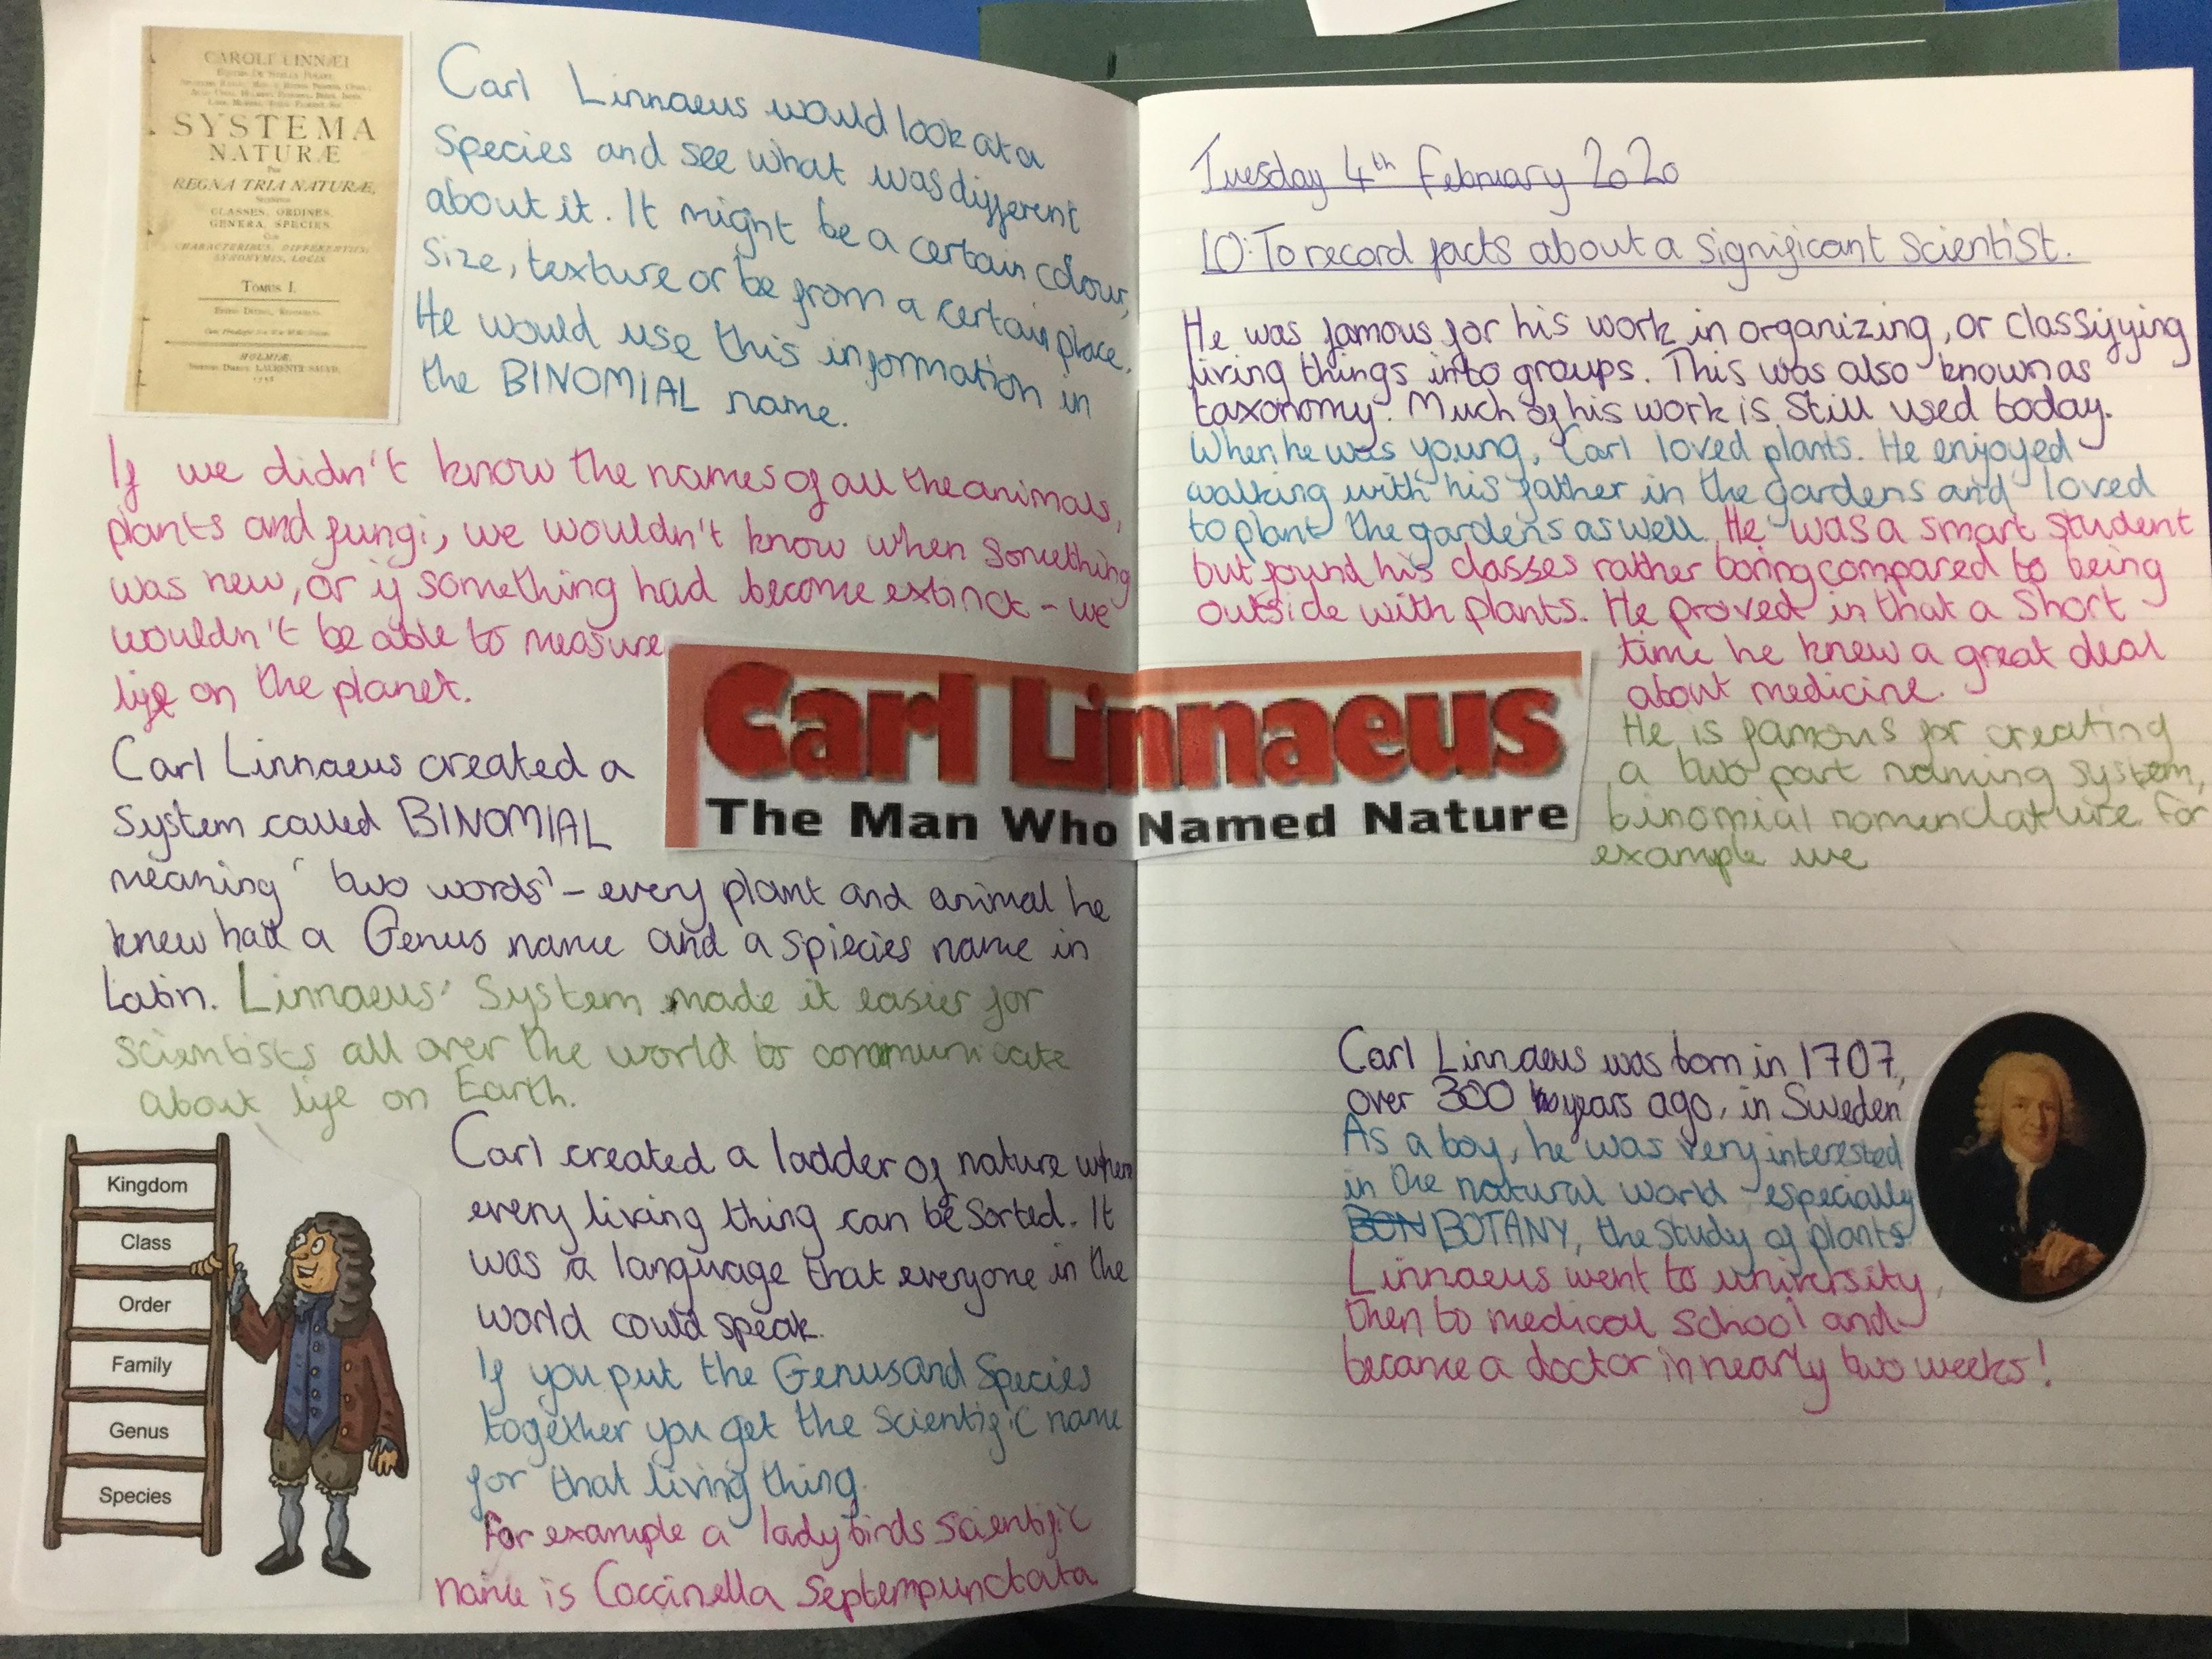 CAROLI LINNÆI
SYSTEMA
NATURÆ
PER
REGNA TRIA NATURÆ,
SECUNDUM
CLASSES, ORDINES,
GENERA, SPECIES,
CUM
CHARACTERIBUS, DIFFERENTIIS,
SYNONYMIS, LOCIS.
TOMUS I.
HOLMIÆ,
LAURENTII SALVII,
Carl Linnaeus would look at a
Species and see what was different
about it. It might be a certain colour,
size, texture or be from a certain place.
He would use this information in
the BINOMIAL name.
If we didn't know the names of all the animals,
plants and fungi, we wouldn't know when something
was new, or if something had become extinct - we
wouldn't be able to measure
life on the planet.
Carl Linnaeus created a
System called BINOMIAL
meaning 'two words' - every plant and animal he
knew had a Genus name and a spiecies name in
Latin. Linnaeus' System made it easier for
scientists all over the world to communicate
about life on Earth.
Kingdom
Class
Order
Family
Genus
Species
Carl created a ladder of nature where
every living thing can be sorted. It
was a language that everyone in the
world could speak.
If you put the Genus and Species
together you get the scientific name
for that living thing.
For example a ladybirds scientific
name is Coccinella Septempunctata
Carl Linnaeus
The Man Who Named Nature
Tuesday 4th February 2020
LO: To record facts about a significant scientist.
He was famous for his work in organizing, or classifying
living things into groups. This was also known as
taxonomy. Much of his work is still used today.
When he was young, Carl loved plants. He enjoyed
walking with his father in the gardens and loved
to plant the gardens as well. He was a smart student
but found his classes rather boring compared to being
outside with plants. He proved in that a short
time he knew a great deal
about medicine.
He is famous for creating
a two part naming system,
binomial nomenclature. For
example we
Carl Linnaeus was born in 1707,
over 300 years ago, in Sweden
As a boy, he was very interested
in the natural world - especially
BON BOTANY, the study of plants.
Linnaeus went to university,
then to medical school and
became a doctor in nearly two weeks!